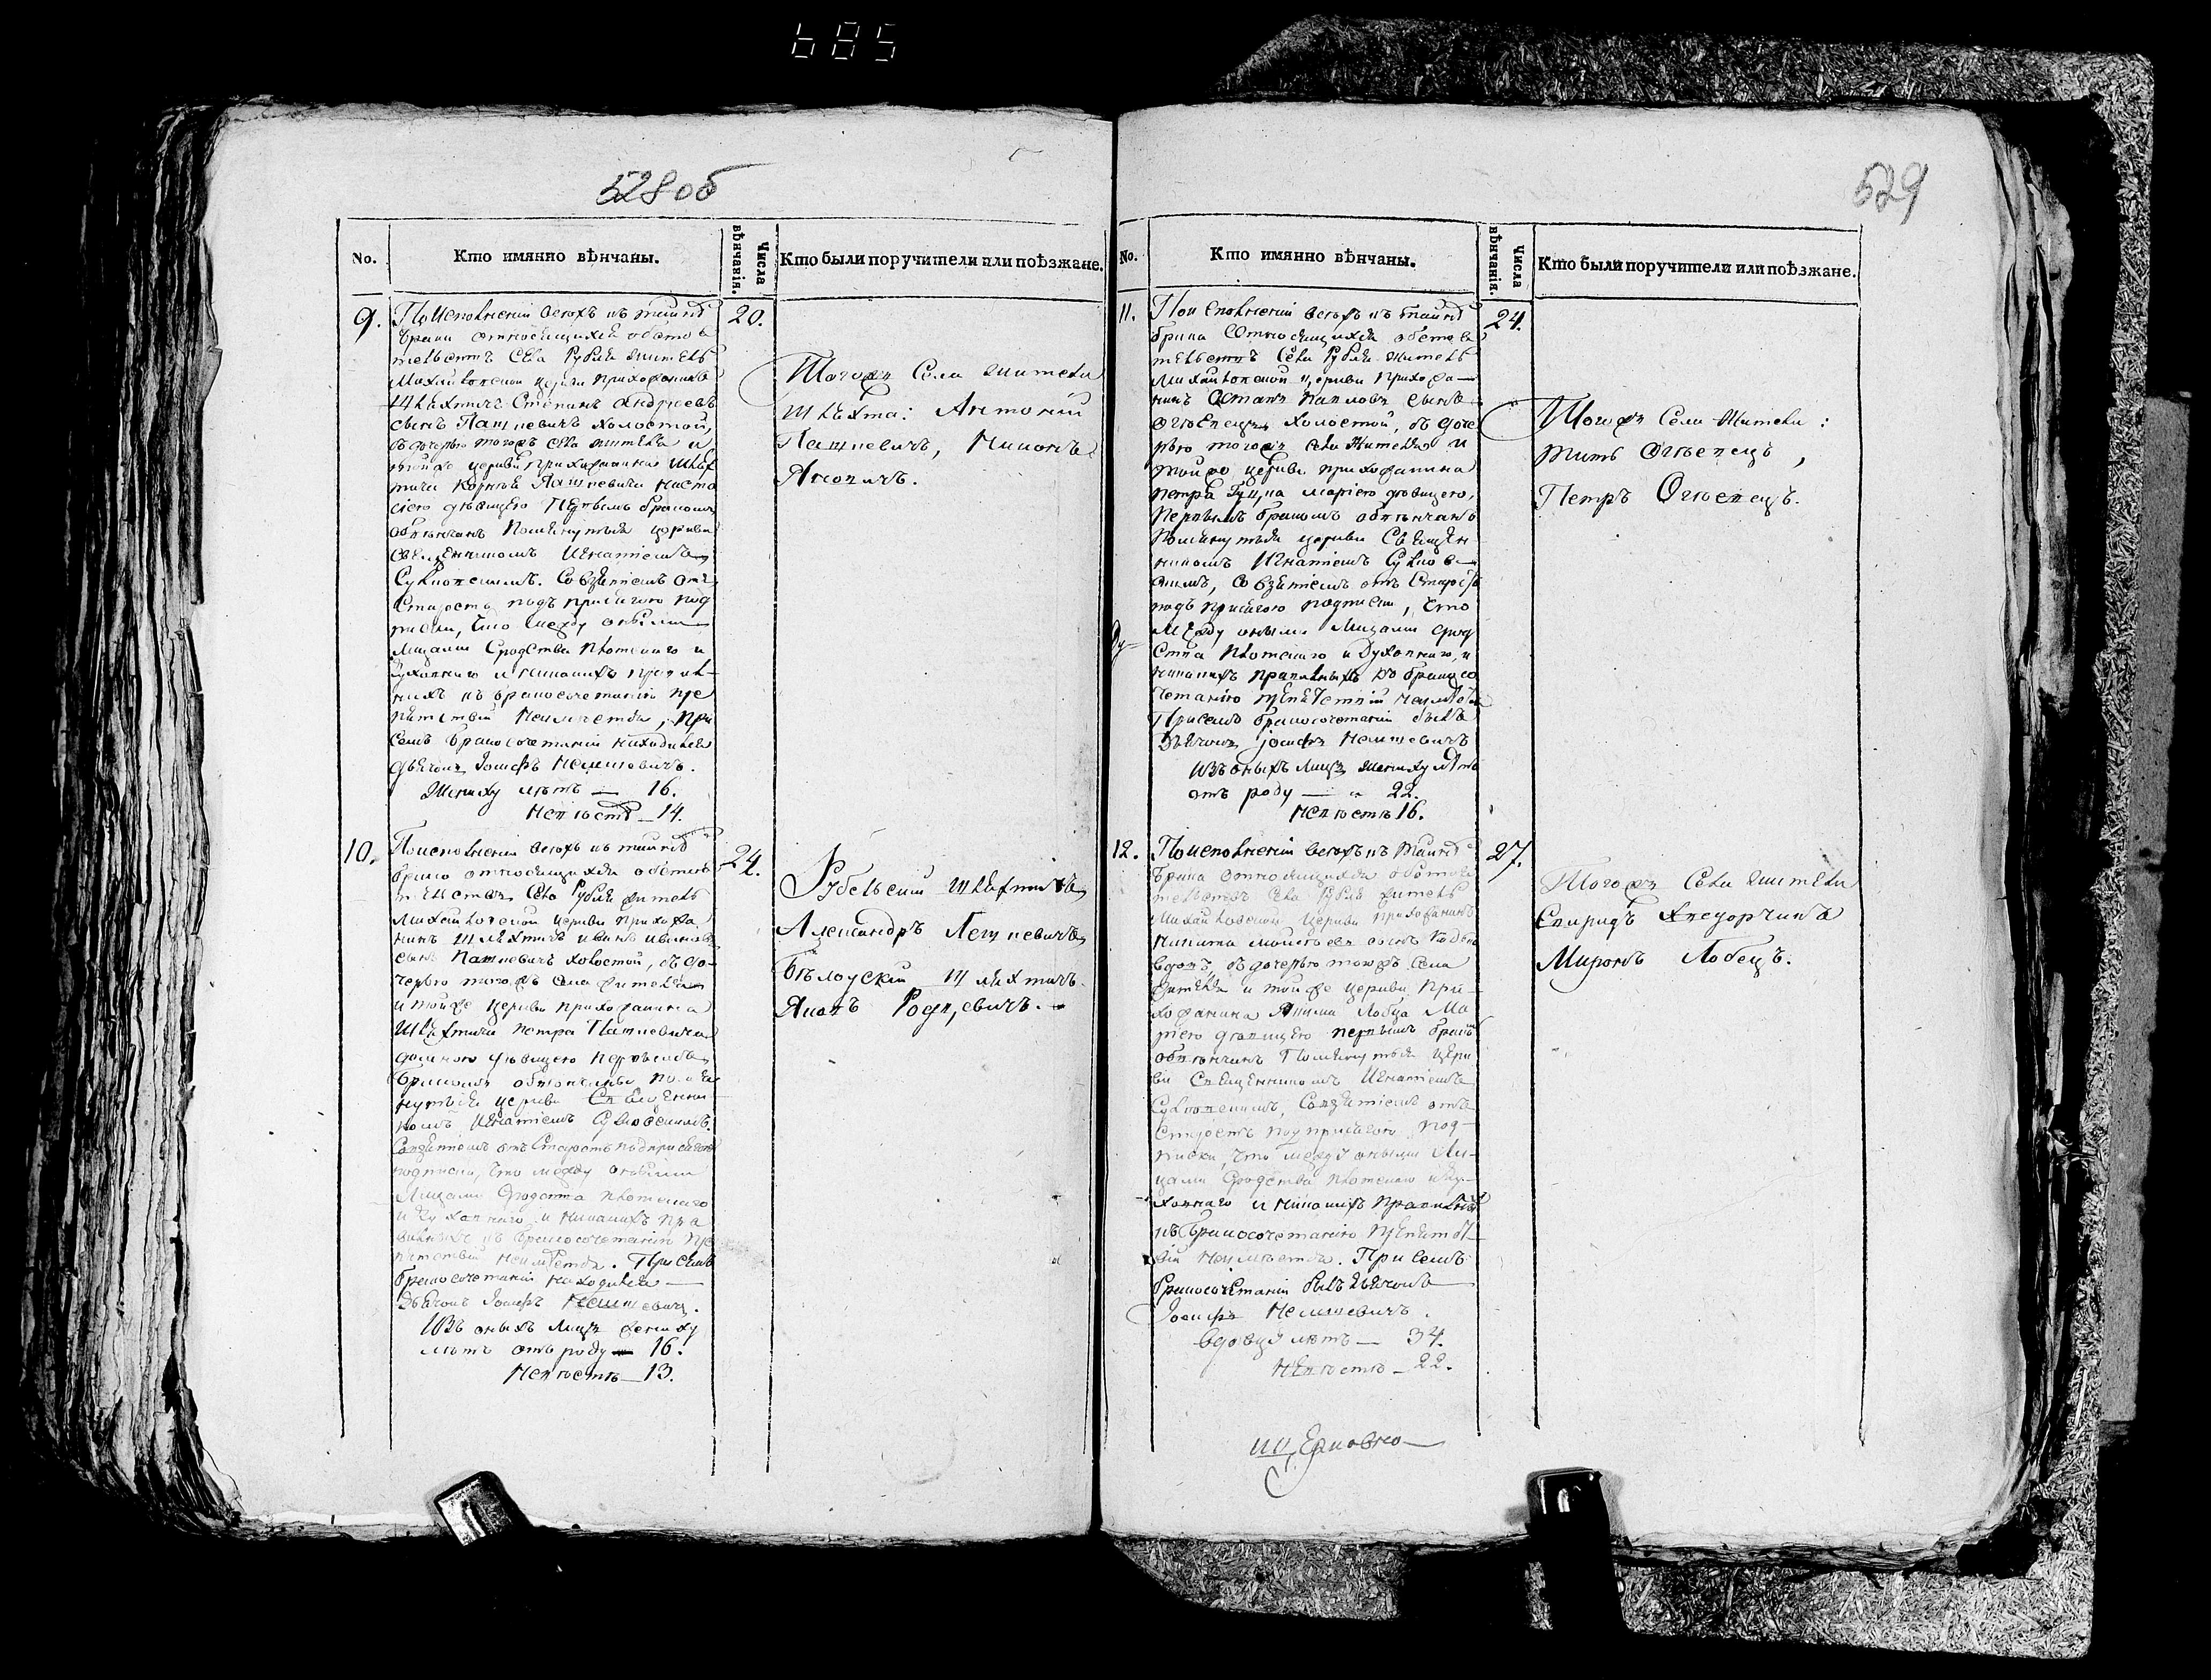 685
528 об
No.
Кто имянно вѣнчаны.
Числа вѣнчанія.
Кто были поручители или поѣзжане.
9.
По исполненіи всѣхъ къ тайнѣ
брака относящихся обстоя
тельствъ Села Рубля житель
Михайловской церкви прихожанинъ
Шляхтичъ Степанъ Андреевъ
сынъ Пашкевичъ холостой,
съ дочерью тогожъ села жителя и
тойже церкви прихожанина Шлях
тича Корнѣя Пашкевича Наста
сіею дѣвицею Первымъ бракомъ
обвѣнчанъ Помянутыя церкви
Священникомъ Игнатіемъ
Сулковскимъ. Со взятіемъ отъ
Старостъ подъ присягою под
писки, Что между оными
Лицами Сродства Плотскаго и
Духовнаго и никакихъ правиль
ныхъ къ бракосочетанію пре
пятствій Неимѣется, При
семъ бракосочетаніи находился
дьячокъ Іосифъ Немшевичъ.
Жениху лѣтъ — 16.
Невѣстѣ — 14.
20.
Тогожъ Села жители
шляхта: Антоній
Пашкевичъ,
10.
По исполненіи всѣхъ къ тайнѣ
брака относящихся обстоя
тельствъ Села Рубля житель
Михайловской церкви прихожа
нинъ шляхтичъ Иванъ Ивановъ
сынъ Пашкевичъ холостой, съ до-
черью тогожъ села жителя
и тойже церкви прихожанина
Шляхтича Петра Пашкевича
дѣвицею Первымъ
бракомъ обвѣнчаны помя
нутыя церкви Священни-
комъ Игнатіемъ Сулковскимъ.
Совзятіемъ отъ Старостъ подъ присягою
подписки, Что между оными
Лицами Сродства плотскаго
и духовнаго и никакихъ пра
вильныхъ къ бракосочетанію пре
пятствій неимѣется. При семъ
бракосочетаніи находился
Дьячокъ Іосифъ Немшевичъ.
Изъ оныхъ Лицъ жениху
лѣтъ отъ роду — 16.
Невѣстѣ — 13.
24.
Рубельскій шляхтичъ
Александръ Пешкевичъ
шляхтичъ
529
No.
Кто имянно вѣнчаны.
Числа вѣнчанія.
Кто были поручители или поѣзжане.
11.
По исполненіи всѣхъ къ тайнѣ
брака Относящихся обстоя
тельствъ Села Рубля житель
Михайловской церкви прихожа—
нинъ Остапъ Павловъ сынъ
холостой, съ доче
рью тогожъ села жителя и
тойже церкви прихожанина
Петра Гуцка Маріею дѣвицею,
Первымъ бракомъ обвѣнчанъ
Помянутыя церкви Священ
никомъ Игнатіемъ Сулков—
скимъ, Со взятіемъ отъ Старостъ
подъ присягою подписки, Что
Между оными Лицами срод
ства плотскаго и Духовнаго, и
никакихъ правильныхъ къ бракосо
четанію препятствій неимѣется
При семъ бракосочетаніи былъ
Дьячокъ Іосифъ Немшевичъ
Изъ оныхъ Лицъ жениху лѣтъ
отъ роду — 22.
Невѣстѣ 16.
24.
Тогожъ Села Жители:
Титъ Огіевецъ,
Петръ Огіевецъ.
12.
По исполненіи всѣхъ къ тайнѣ
брака относящихся обстоя
тельствъ Села Рубля житель
Михайловской церкви прихожанинъ
Никита Моисѣевъ сынъ
вдовъ, съ дочерью тогожъ Села
жителя и тойже церкви При-
хожанина Якима Лобца Ма
ріею дѣвицею первымъ бракомъ
обвѣнчанъ Помянутыя церк
ви Священникомъ Игнатіемъ
Сулковскимъ, Совзятіемъ отъ
Старостъ подъ присягою под-
писки, что между оными Ли-
цами Сродства плотскаго и Ду-
ховнаго и никакихъ Правильныхъ
къ бракосочетанію препятст-
вій Неимѣется. При семъ
бракосочетаніи былъ Дьячокъ
Іосифъ Немшевичъ.
вдовцу лѣтъ — 34.
Невѣстѣ — 22.
27.
Тогожъ Села жители
Спиридъ
Миронъ Лобецъ.